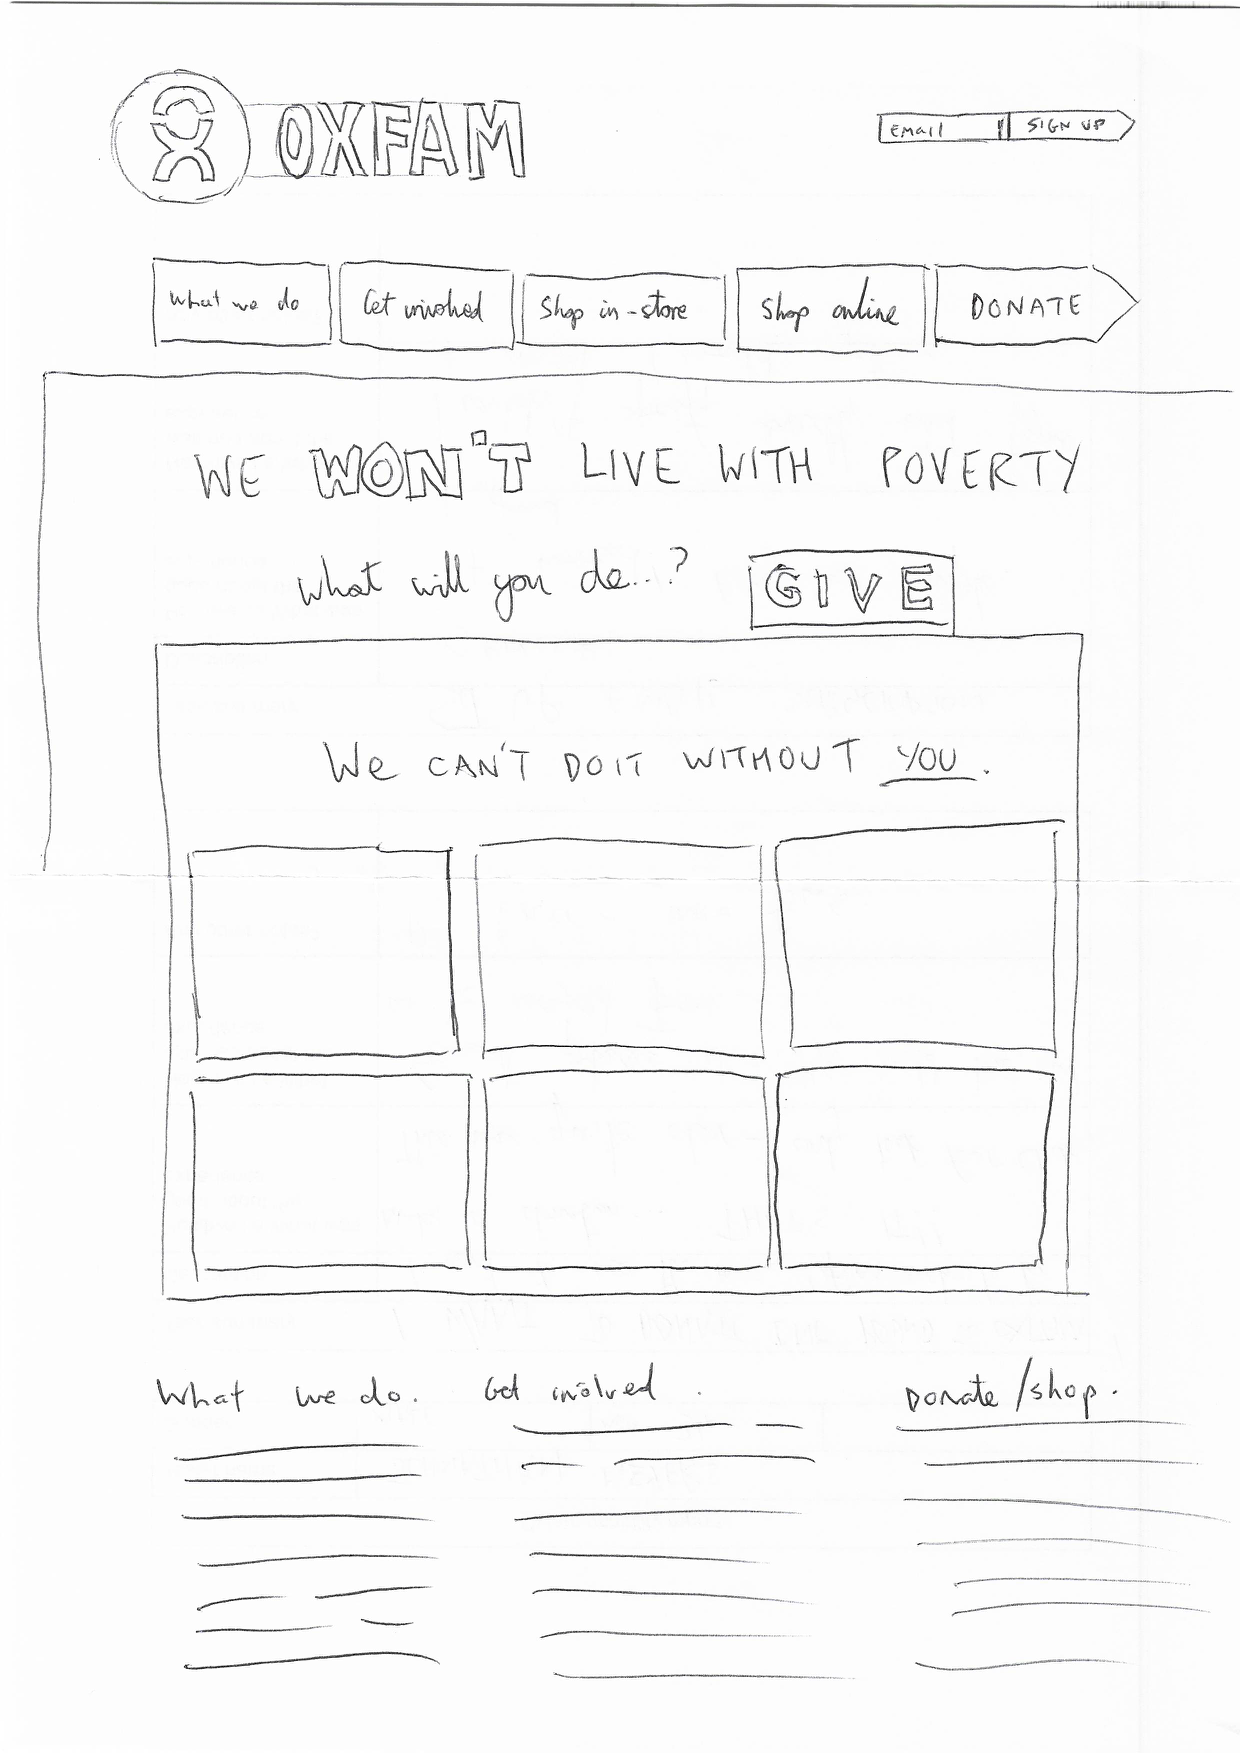 OXFAM
EMail SIGN UP
What we do
Get involved
Shop in-store
Shop online
DONATE
WE WON'T LIVE WITH POVERTY
What will you do...?
GIVE
We CAN'T DO IT WITHOUT YOU.
What we do.
Get involved.
Donate/shop.